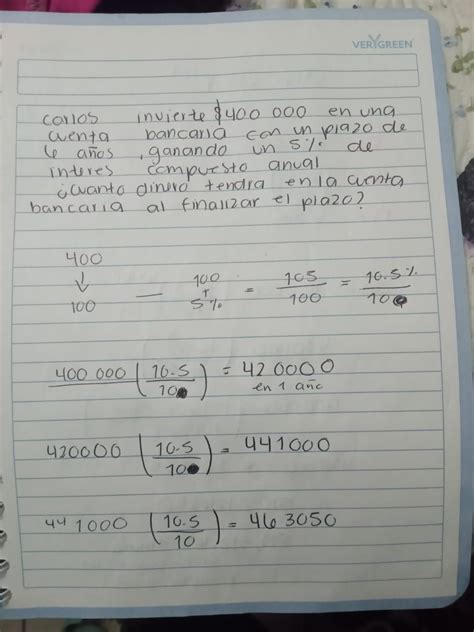 VERYGREEN
carlos invierte $400 000 en una
cuenta bancaria con un plazo de
6 años, ganando un 5% de
interes compuesto anual
¿cuanto dinero tendra en la cuenta
bancaria al finalizar el plazo?
400
↓
100 — 100 + 5% = 105/100 = 10.5%/10
400 000 (10.5/10) = 420000
en 1 año
420000 (10.5/10) = 441000
441000 (10.5/10) = 463050